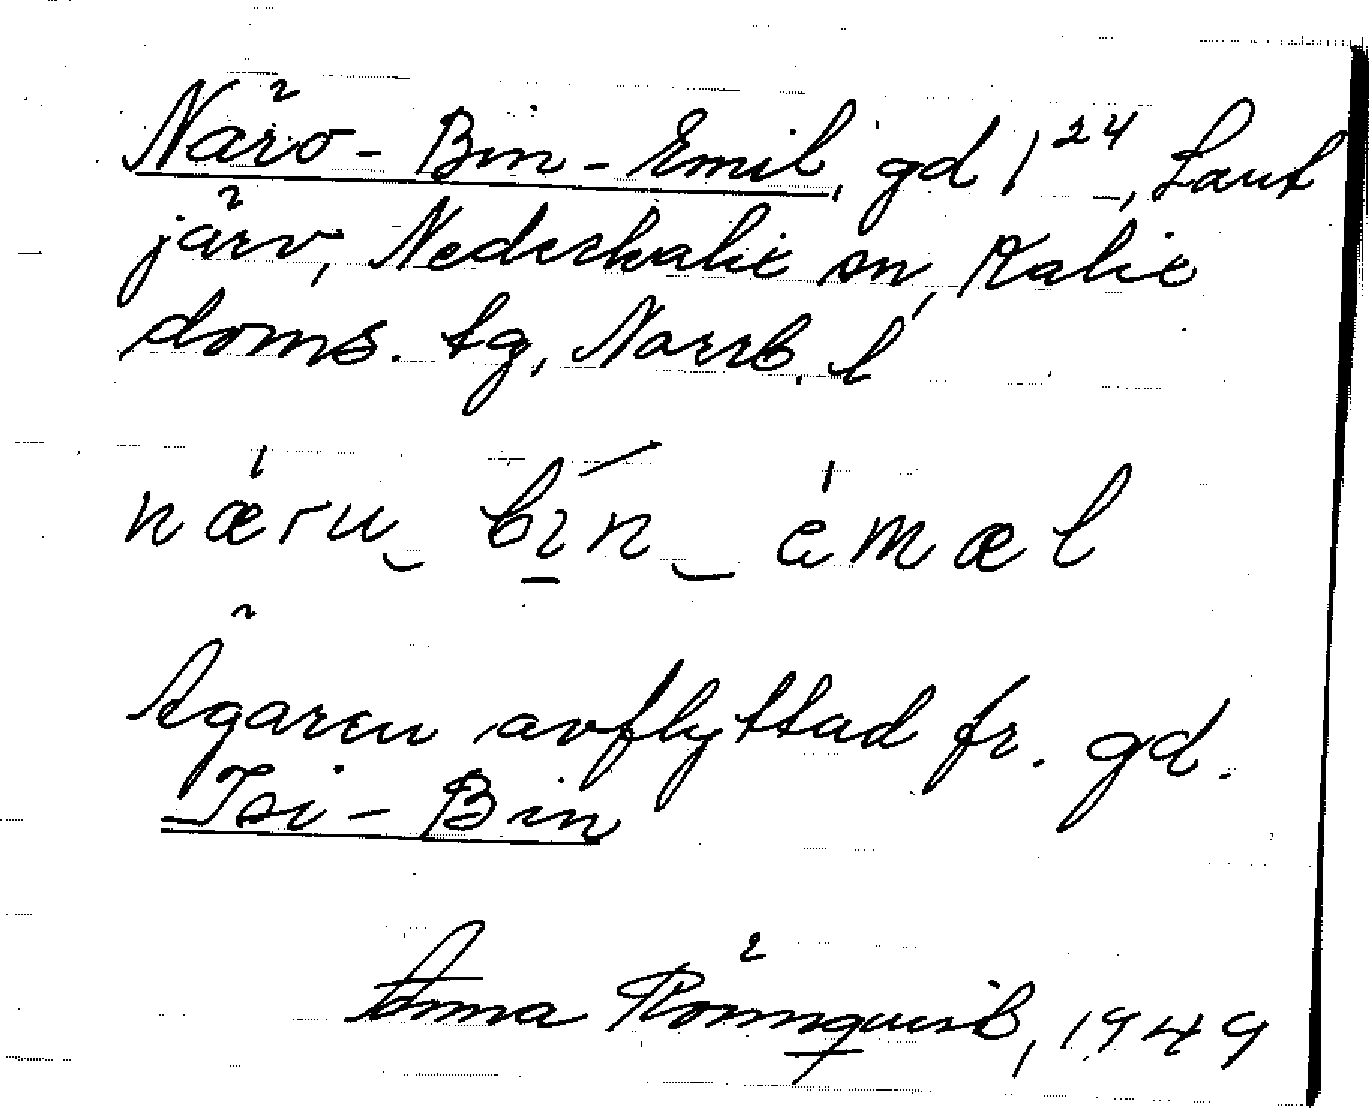 Närö-Bin-Emil, gd 1²⁴, Lant
järv, Nederkalix sn, Kalix
doms. tg, Norrb. l
næru‿ bın‿ emæl
Ägaren avflyttad fr. gd.
Isi-Bin
Anna Rönnquist, 1949